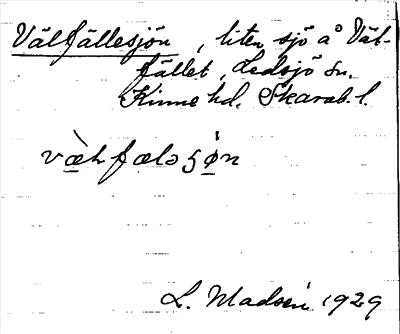 Välfällesjön, liten sjö å Väl-
fället, Ledsjö sn.
Kinne hd. Skarab. l.
væ̀lfæləʂø̀n
L. Madsén 1929